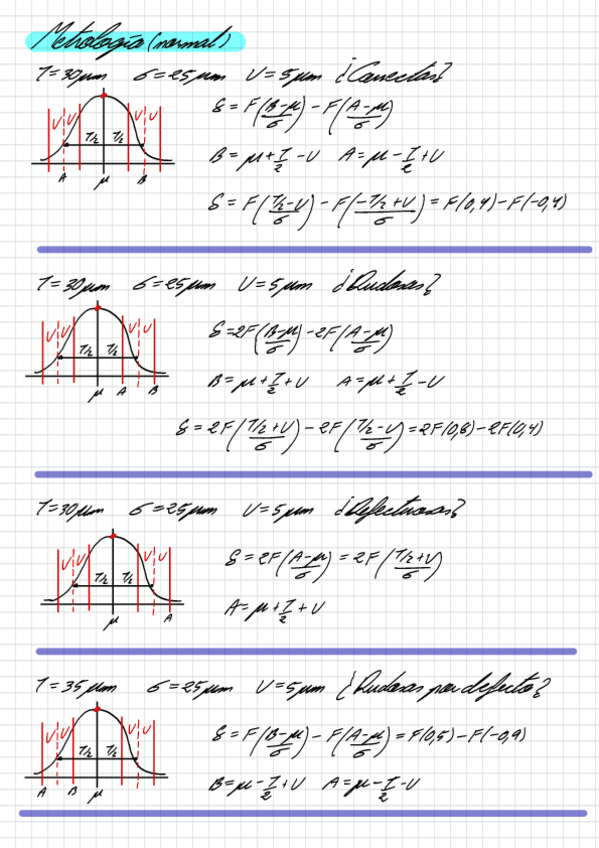 Metrología (normal)
T=30μm σ=25μm U=5μm ¿Correctas?
U U T/2 T/2 U U
A μ B
δ = F((B-μ)/σ) - F((A-μ)/σ)
B = μ+T/2-U A = μ-T/2+U
δ = F((T/2-U)/σ) - F((-T/2+U)/σ) = F(0,4)-F(-0,4)
T=30μm σ=25μm U=5μm ¿Dudosas?
U U T/2 T/2 U U
μ A B
δ=2F((B-μ)/σ)-2F((A-μ)/σ)
B = μ+T/2+U A = μ+T/2-U
δ = 2F((T/2+U)/σ) - 2F((T/2-U)/σ) = 2F(0,8)-2F(0,4)
T=30μm σ=25μm U=5μm ¿Defectuosas?
U U T/2 T/2 U U
μ A
δ = 2F((A-μ)/σ) = 2F((T/2+U)/σ)
A = μ+T/2+U
T=35μm σ=25μm U=5μm ¿Dudosas por defecto?
U U T/2 T/2 U U
A B μ
δ = F((B-μ)/σ) - F((A-μ)/σ) = F(0,5)-F(-0,9)
B = μ-T/2+U A = μ-T/2-U